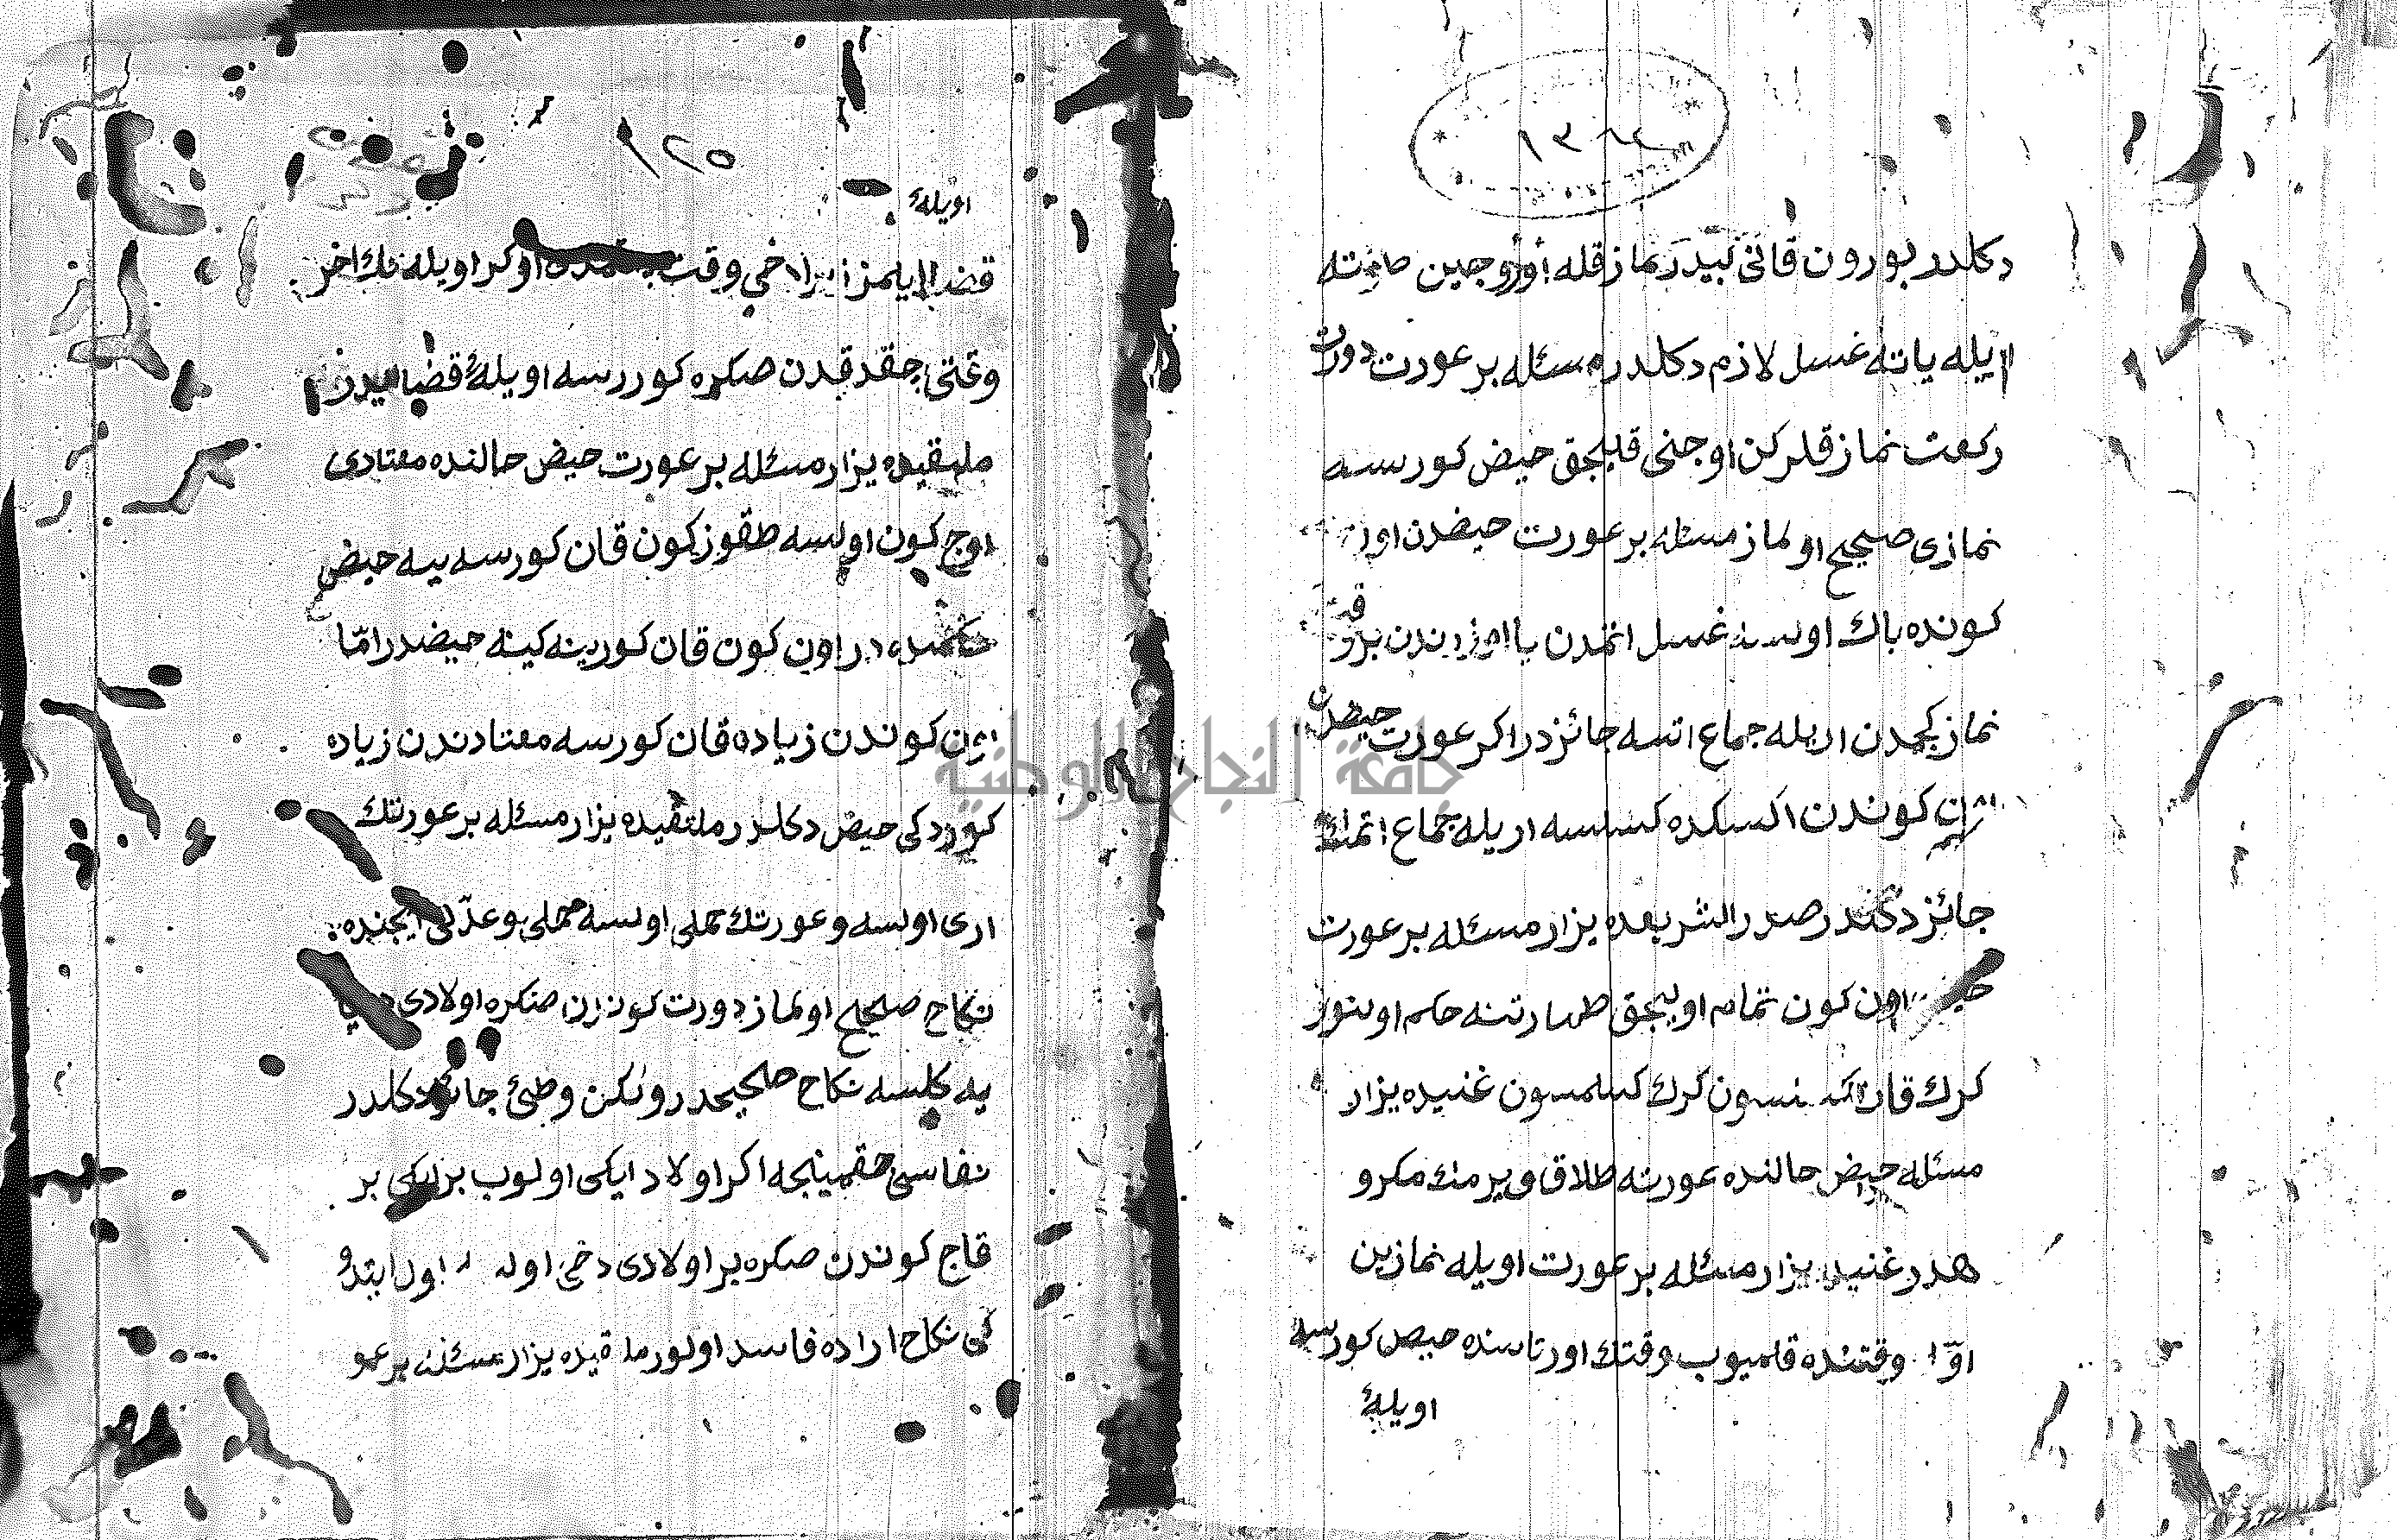 ١٣٦٤
دكلدر بورون قانى كبيدر نماز قله اوروجين طوته
اريله ياته غسل لازم دكلدر مسئله بر عورت دورت
ركعت نماز قلركن اوجنى قليجق حيض كورسه
نمازى صحيح اولماز مسئله بر عورت حيضدن اون
كونده باك اولسه غسل اتمدن يا اوزرندن بر وقت
نماز كچمدن اريله جماع اتسه جائزدر اكر عورت حيضدن
اون كوندن اكسكده كسلسه اريله جماع اتمك
جائز دكلدر صدر الشريعده يزار مسئله بر عورت
حيضى اون كون تمام اوليجق طهارتنه حكم اولنور
كرك قان كسلسون كرك كسلمسون غنيده يزار
مسئله حيض حالنده عورته طلاق ويرمك مكرو
هدر غنيده يزار مسئله بر عورت اويله نمازين
اول وقتنده قلميوب وقتك اورتاسنده حيض كورسه
اويلهٔ
١٢٥
اويلهٔ
قضا ايلمز زيرا دخى وقت چقمدن اوكر اويله نك اخر
وقتى چقدقدن صكره كوررسه اويلهٔ قضا ايدر
ملتقيده يزار مسئله بر عورت حيض حالنده معتادى
اوج كون اولسه طقوز كون قان كورسه ينه حيض
حكمنده در اون كون قان كورينه كينه حيضدر امّا
اون كوندن زياده قان كورسه معتادندن زياده
كوردكى حيض دكلدر ملتقيده يزار مسئله بر عورتك
ارى اولسه و عورتك حملى اولسه حملى و عدّتى ايچنده
نكاح صحيح اولماز دورت كوندن صكره اولادى دنيا
يه كلسه نكاح صحيحدر ولكن وطئ جائز دكلدر
نفاسى چقمينجه اكر اولاد ايكى اولوب بر ايكى بر
قاج كوندن صكره بر اولادى دخى اوله اول ايتدو
كى نكاح اراده فاسد اولور ملتقيده يزار مسئله بر عو
جامعة النجاح الوطنية